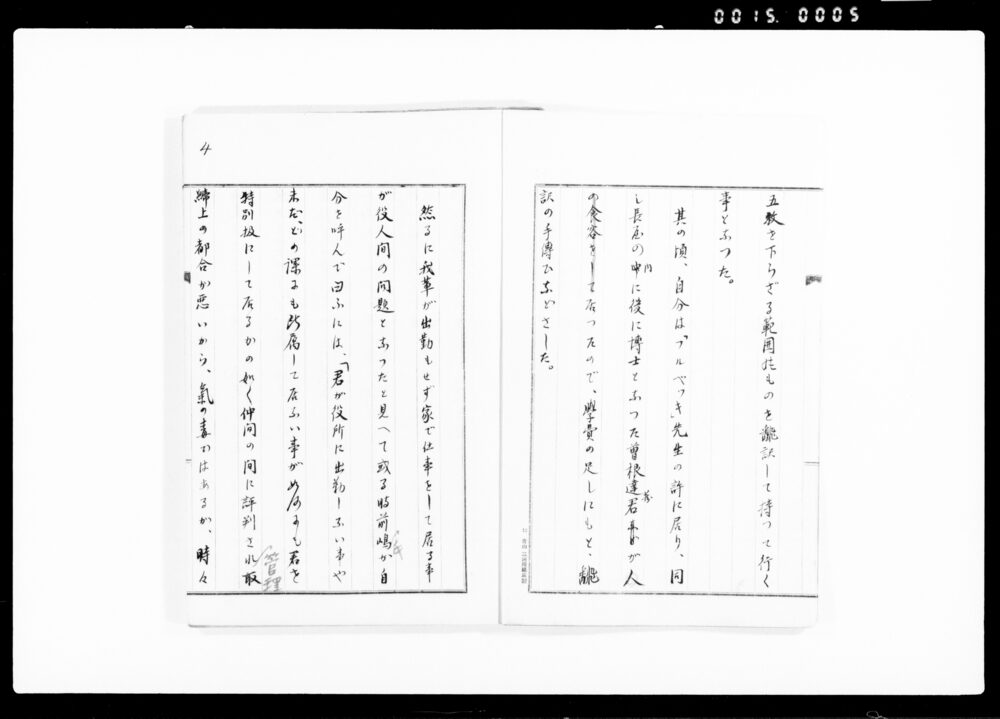 0015.0005
五枚を下らざる範囲のものを飜訳して持つて行く
事となつた。
其の頃、自分は「フルベツキ」先生の許に居り、同
じ長屋の中に後に博士となつた曽根達蔵君が人
内
の食客をして居つたので、學費の足しにもと、飜
訳の手傳ひなどさした。
4
然るに我輩が出勤もせず家で仕事をして居る事
が役人間の問題となつたと見へて或る時前嶋が自
氏
分を呼んで曰ふには、「君が役所に出勤しない事や
未だ、どの課にも所属して居ない事が
君を
特別扱にして居るかの如く仲間の間に評判され取
管理
締上の都合が悪いから、氣の毒ではあるが、時々